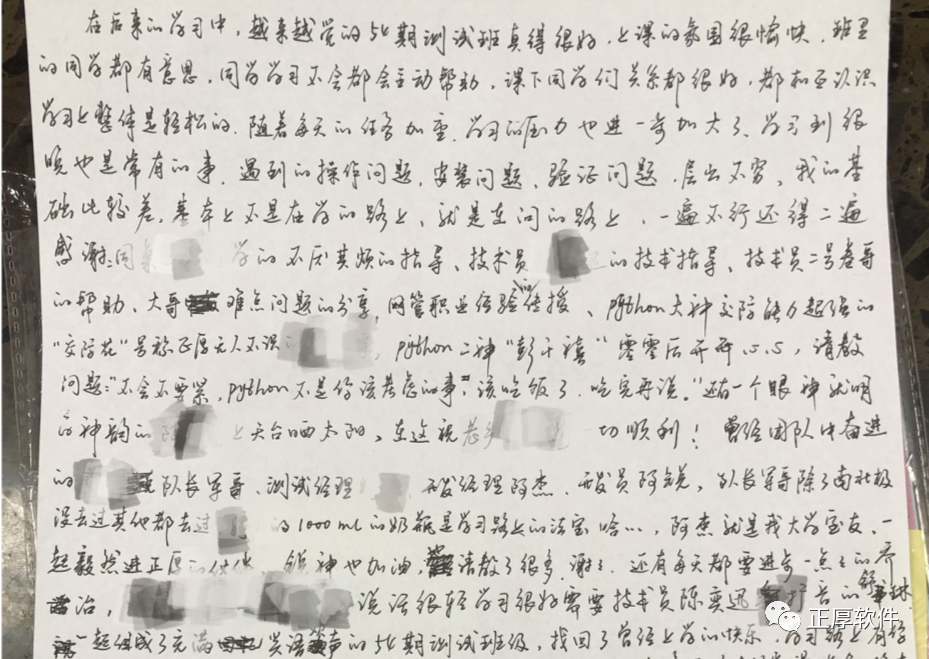 在后来的学习中,越来越觉的54期测试班真得很好,上课的氛围很愉快.班里
的同学都有意思,同学学习不会都会主动帮助,课下同学们关系都很好,都相互认识
学习上整体是轻松的.随着每天的任务加重.学习的压力也进一步加大了、学习到很
晚也是常有的事.遇到的操作问题,安装问题、验证问题.层出不穷,我的基
础比较差,基本上不是在学的路上、就是在问的路上,一遍不行还得二遍
感谢:同 学的不厌其烦的指导、技术员 的技术指导、技术员二号春哥
的帮助、大哥 难点问题的分享,网管职业经验的传授、python大神交际能力超强的
"交际花"号称正厚无人不识 ,python二神"彭于禧"零零后开开心心,请教
问题:"不会不要紧,python不是你该考虑的事",该吃饭了.吃完再说。"还有一个眼神就明
白神韵的 上天台晒太阳,在这祝 一切顺利!曾经团队中奋进
的 队长军哥、测试经理 .开发经理阿杰.开发员阿锐,队长军哥除了南北极
没去过其他都去过 的1000ml的奶瓶是学习路上的法宝哈…,阿杰就是我大学室友、一
起毅然进正厚的伙伴 锐神也加油,请教了很多.谢谢.还有每天都要进步一点点的乔
治, 说话很轻学习很好需要技术员陈奕迅 音的舒 琳
一起组成了充满 笑语 声的54期测试班级,找回了曾经上学的快乐.学习路上有好
正厚软件